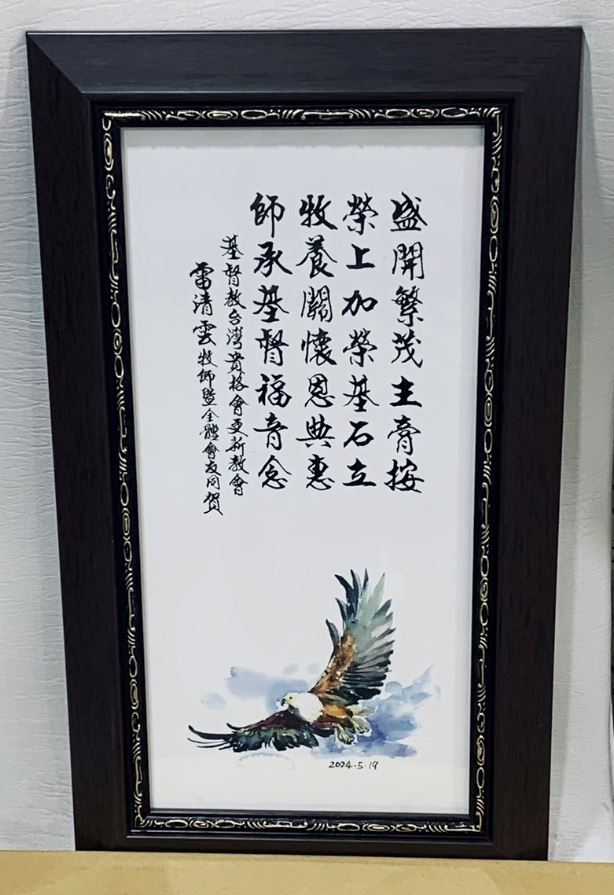 盛開繁茂主膏按
榮上加榮基石立
牧養關懷恩典惠
師承基督福音念
基督教台灣貴格會更新教會
雷清雲牧師暨全體會友同賀
2024.5.19